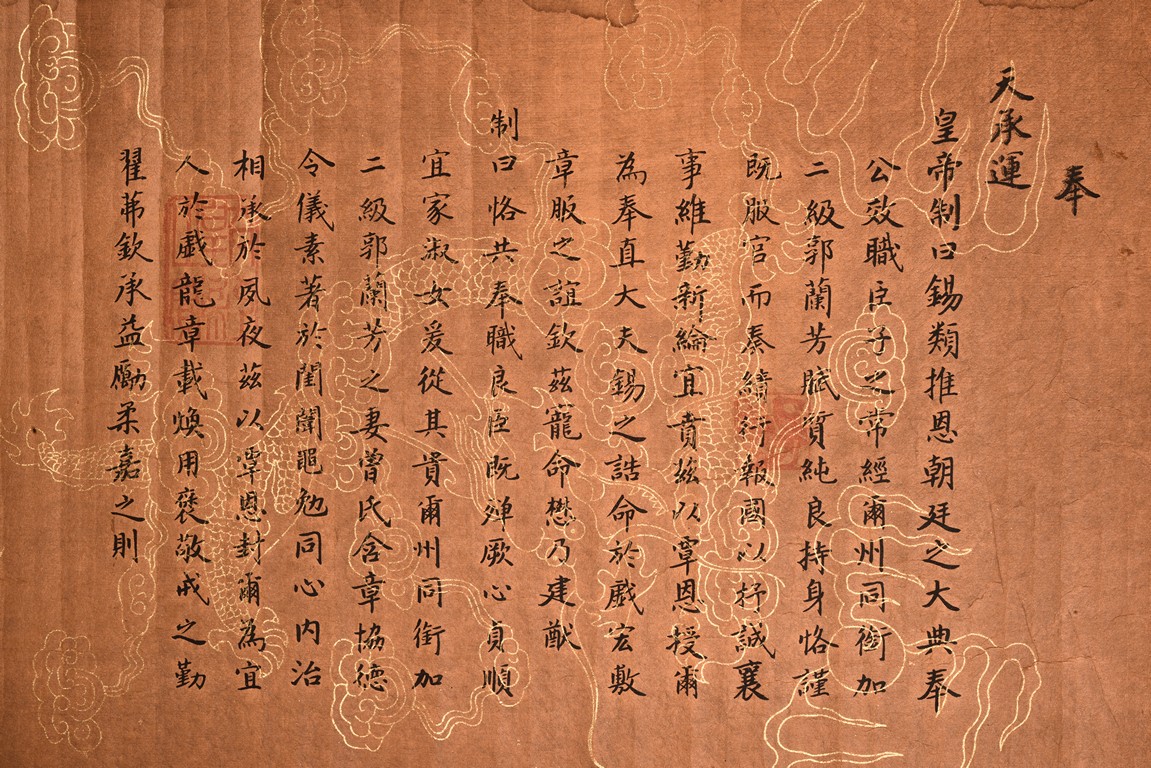 奉
天承運
皇帝制曰錫類推恩朝廷之大典奉
公效職臣子之常經爾州同銜加
二級郭蘭芳賦質純良持身恪謹
既服官而奏績行報國以抒誠襄
事維勤新綸宜賁茲以覃恩授爾
為奉直大夫錫之誥命於戲宏敷
章服之誼欽茲寵命懋乃建猷
制曰恪共奉職良臣既殫厥心貞順
宜家淑女爰從其貴爾州同銜加
二級郭蘭芳之妻曾氏含章協德
令儀素著於閨闈黽勉同心內治
相承於夙夜茲以覃恩封爾為宜
人於戲龍章載煥用褒敬戒之勤
翟茀欽承益勵柔嘉之則